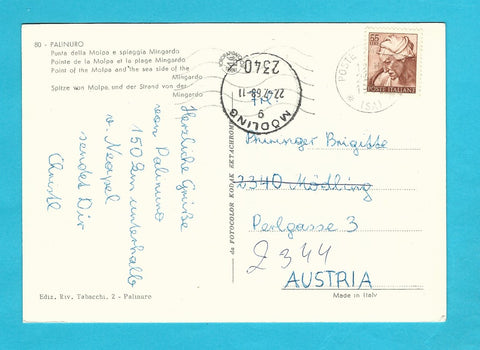 80 - PALINURO
Punta della Molpa e spiaggia Mingardo
Pointe de la Molpa et la plage Mingardo
Point of the Molpa and the sea side of the
Mingardo
Spitze von Molpa und der Strand von der
Mingardo
Herzliche Grüße
von Palinuro
150 km unterhalb
v. Neapel
sendet Dir
Christl
Ediz. Riv. Tabacchi, 2 - Palinuro
da FOTOCOLOR KODAK EKTACHROME
2340
22.-7.68-11
g
MÖDLING
POSTE
(SA)
55
POSTE ITALIANE
Brigitte
2340 Mödling
Perlgasse 3
2344
AUSTRIA
Made in Italy